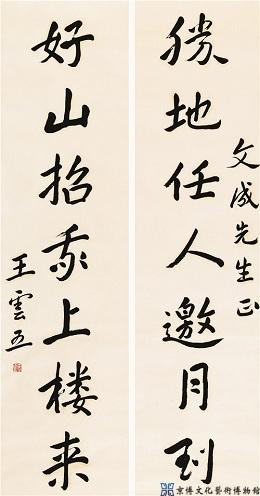 勝地任人邀月到
文成先生正
好山招我上楼来
王雲五
京博文化藝術博物館